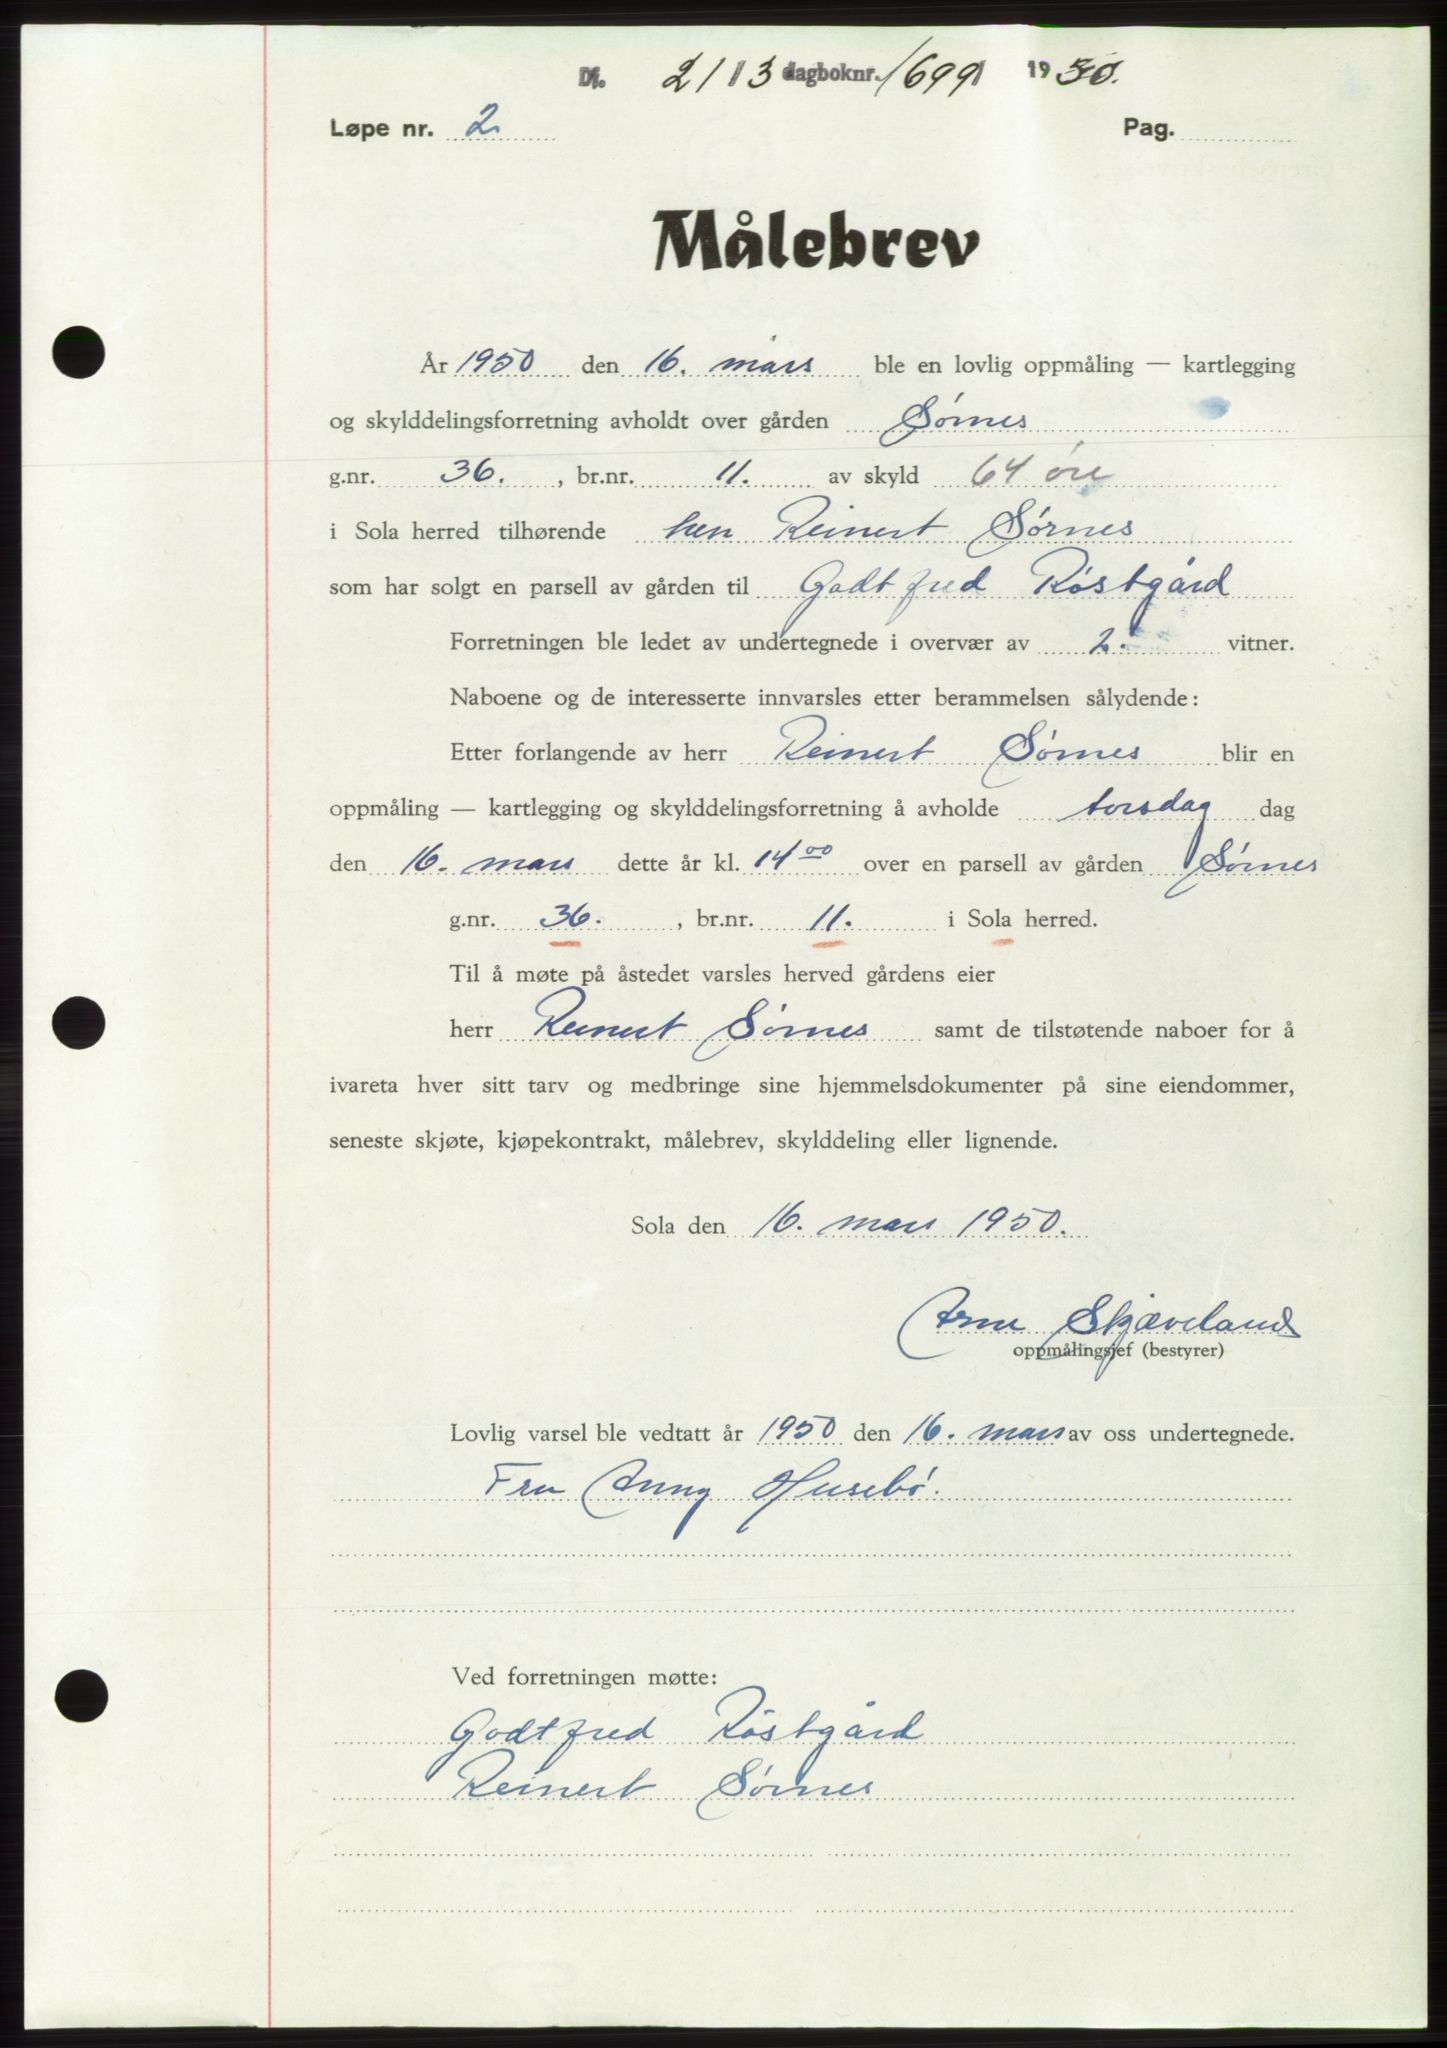 Df. 21/3 dagboknr. 1699 1950.
Løpe nr. 2 Pag.
Målebrev
År 1950 den 16. mars ble en lovlig oppmåling — kartlegging
og skylddelingsforretning avholdt over gården Sørnes
g.nr. 36. , br.nr. 11. av skyld 64 øre
i Sola herred tilhørende herr Reinert Sørnes
som har solgt en parsell av gården til Godtfred Røstgård
Forretningen ble ledet av undertegnede i overvær av 2. vitner.
Naboene og de interesserte innvarsles etter berammelsen sålydende:
Etter forlangende av herr Reinert Sørnes blir en
oppmåling — kartlegging og skylddelingsforretning å avholde torsdag dag
den 16. mars dette år kl. 14 00 over en parsell av gården Sørnes
g.nr. 36. , br.nr. 11. i Sola herred.
Til å møte på åstedet varsles herved gårdens eier
herr Reinert Sørnes samt de tilstøtende naboer for å
ivareta hver sitt tarv og medbringe sine hjemmelsdokumenter på sine eiendommer,
seneste skjøte, kjøpekontrakt, målebrev, skylddeling eller lignende.
Sola den 16. mars 1950.
Arne Skjæveland
oppmålingsjef (bestyrer)
Lovlig varsel ble vedtatt år 1950 den 16. mars av oss undertegnede.
Fru Anny Husebø.
Ved forretningen møtte:
Godtfred Røstgård
Reinert Sørnes